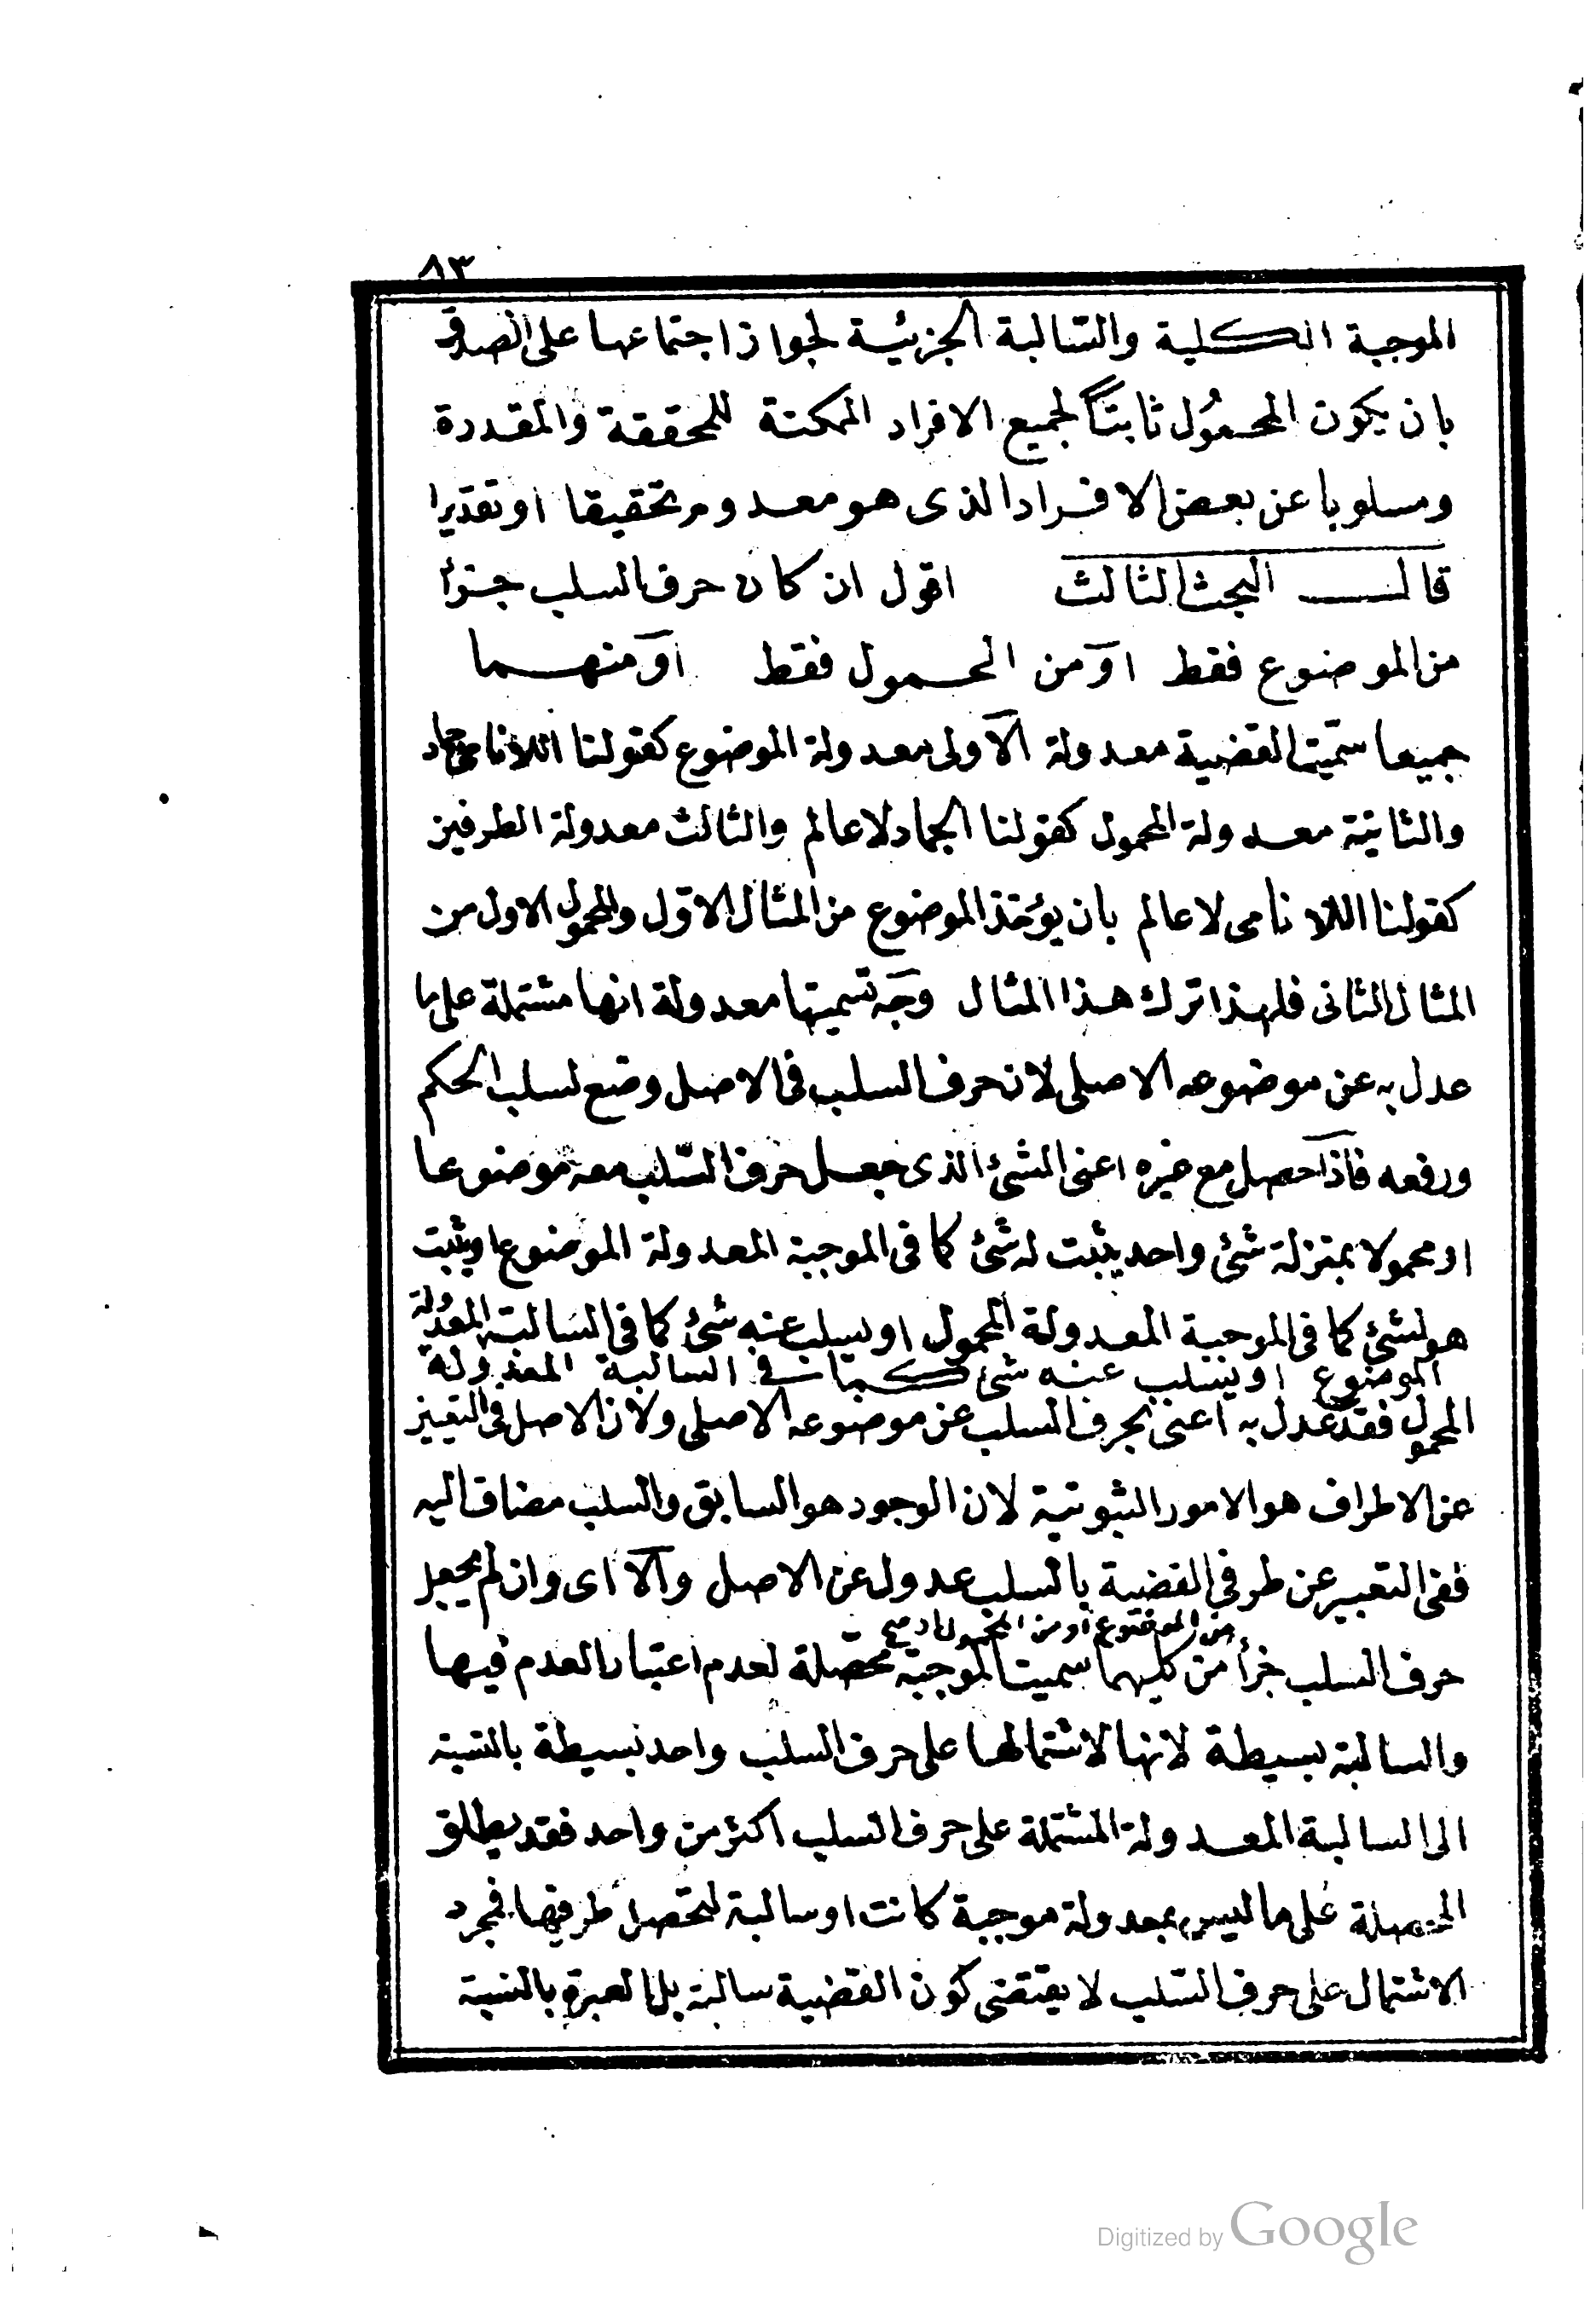 ٨٣
الموجبة الكلية والسّالبة الجزئية لجواز اجتماعهما على الصدق
بان يكون المحمُول ثابتاً لجميع الافراد الممكنة المحققة والمقدرة
ومسلوبا عن بعض الافراد الذى هو معدوم تحقيقا او تقديرا
قال البحث الثالث اقول ان كان حرف السلب جزأ
من الموضوع فقط اومن المحمول فقط اومنهما
جميعا سمّيت القضية معدولة الاولى معدولة الموضوع كقولنا اللانامى جماد
والثانية معدولة المحمول كقولنا الجماد لا عالم والثالث معدولة الطرفين
كقولنا اللا نامى لا عالم بان يؤخذ الموضوع من المثال الاوّل والمحمول الاول من
المثال الثانى فلهذا ترك هذا المثال وجه تسميتها معدولة انها مشتملة على ما
عدل به عن موضوعه الاصلى لان حرف السلب فى الاصل وضع لسلب الحكم
ورفعه فاذا حصل مع غيره اعنى الشئ الذى جعل حرف السّلب معه موضوعا
او محمولا بمنزلة شئ واحد يثبت له شئ كما فى الموجبة المعدولة الموضوع او يثبت
هو لشئ كما فى الموجبة المعدولة المحمول او يسلب عنه شئ كما فى السالبة المعدولة
الموضوع او يسلب عنه شئ كما فى السالبة المعدولة
المحمول فقد عدل به اعنى بحرف السلب عن موضوعه الاصلى ولان الاصل فى التعبير
عن الاطراف هو الامور الثبوتية لان الوجود هو السابق والسلب مضاف اليه
ففى التعبير عن طرفى القضية بالسلب عدول عن الاصل والا اى وان لم يجعل
من الموضوع او من المحمول او مع
حرف السلب جزأ من كليهما سميت الموجبة محصّلة لعدم اعتبار العدم فيها
والسالبة بسيطة لانها لاشتمالها على حرف السلب واحد بسيطة بالنسبة
الى السالبة المعدولة المشتملة على حرف السلب اكثر من واحد فقد يطلق
المحصلة على ما ليس بمعدولة موجبة كانت او سالبة لتحصل طرفيها فمجرد
الاشتمال على حرف السّلب لا يقتضى كون القضية سالبة بل العبرة بالنسبة
Digitized by Google